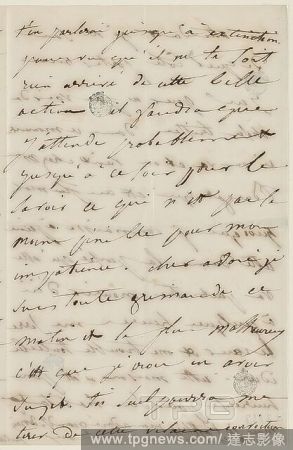 t'en parlerai jusqu'à extinction
pourvu qu'il ne te soit
rien arrivé de cette belle
action il faudra que
j'attende probablement
jusqu'à ce soir pour le
savoir ce qui n'est pas la
moins pour mon
impatience. cher adoré je
suis toute grimaude ce
matin et le plus malheureux
c'est que je crois en avoir
sujet. toi seul pourra me
tirer de cette vilaine
TPG
www.tpgnews.com / 達志影像